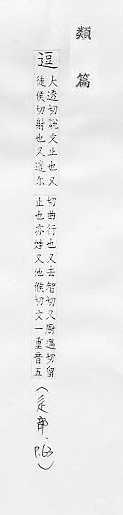 類篇
逗
大透切說文止也又
徒候切射也又遣尔
切曲行也又去智切又厨遇切留
止也亦姓又他候切文一重音五
(辵部, p.63)